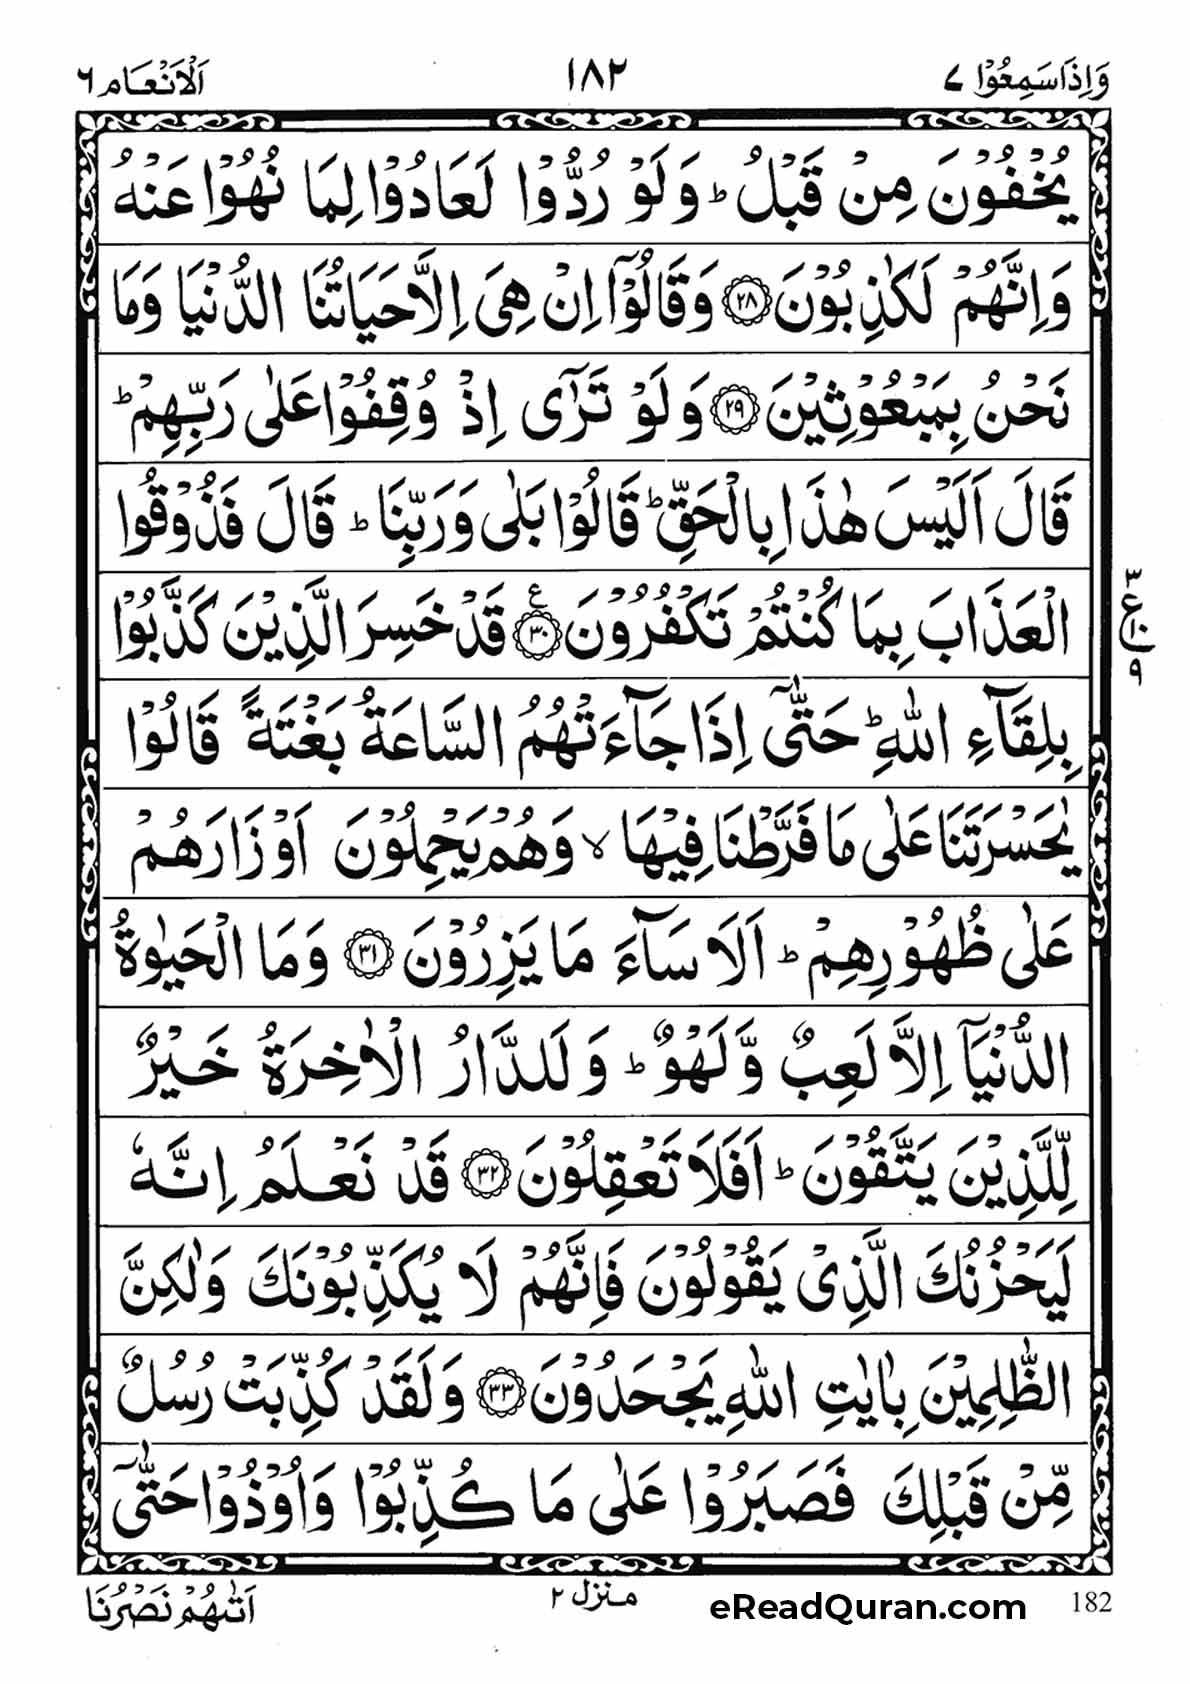 وَاِذَا سَمِعُوْا ٧ ١٨٢ اَلْاَنْعَام ٦
يُخْفُوْنَ مِنْ قَبْلُ ؕ وَلَوْ رُدُّوْا لَعَادُوْا لِمَا نُهُوْا عَنْهُ
وَاِنَّهُمْ لَكٰذِبُوْنَ ﴿٢٨﴾ وَقَالُوْۤا اِنْ هِىَ اِلَّا حَيَاتُنَا الدُّنْيَا وَمَا
نَحْنُ بِمَبْعُوْثِيْنَ ﴿٢٩﴾ وَلَوْ تَرٰۤى اِذْ وُقِفُوْا عَلٰى رَبِّهِمْ ؕ
قَالَ اَلَيْسَ هٰذَا بِالْحَقِّ ؕ قَالُوْا بَلٰى وَرَبِّنَا ؕ قَالَ فَذُوْقُوا
الْعَذَابَ بِمَا كُنْتُمْ تَكْفُرُوْنَ ﴿٣٠﴾ ع قَدْ خَسِرَ الَّذِيْنَ كَذَّبُوْا
بِلِقَآءِ اللّٰهِ ؕ حَتّٰۤى اِذَا جَآءَتْهُمُ السَّاعَةُ بَغْتَةً قَالُوْا
يٰحَسْرَتَنَا عَلٰى مَا فَرَّطْنَا فِيْهَا ۙ وَهُمْ يَحْمِلُوْنَ اَوْزَارَهُمْ
عَلٰى ظُهُوْرِهِمْ ؕ اَلَا سَآءَ مَا يَزِرُوْنَ ﴿٣١﴾ وَمَا الْحَيٰوةُ
الدُّنْيَاۤ اِلَّا لَعِبٌ وَّلَهْوٌ ؕ وَلَلدَّارُ الْاٰخِرَةُ خَيْرٌ
لِّلَّذِيْنَ يَتَّقُوْنَ ؕ اَفَلَا تَعْقِلُوْنَ ﴿٣٢﴾ قَدْ نَعْلَمُ اِنَّهٗ
لَيَحْزُنُكَ الَّذِىْ يَقُوْلُوْنَ فَاِنَّهُمْ لَا يُكَذِّبُوْنَكَ وَلٰكِنَّ
الظّٰلِمِيْنَ بِاٰيٰتِ اللّٰهِ يَجْحَدُوْنَ ﴿٣٣﴾ وَلَقَدْ كُذِّبَتْ رُسُلٌ
مِّنْ قَبْلِكَ فَصَبَرُوْا عَلٰى مَا كُذِّبُوْا وَاُوْذُوْا حَتّٰۤى
٣ ع ١٠ ٩
182 eReadQuran.com منزل ٢ اَتٰىهُمْ نَصْرُنَا